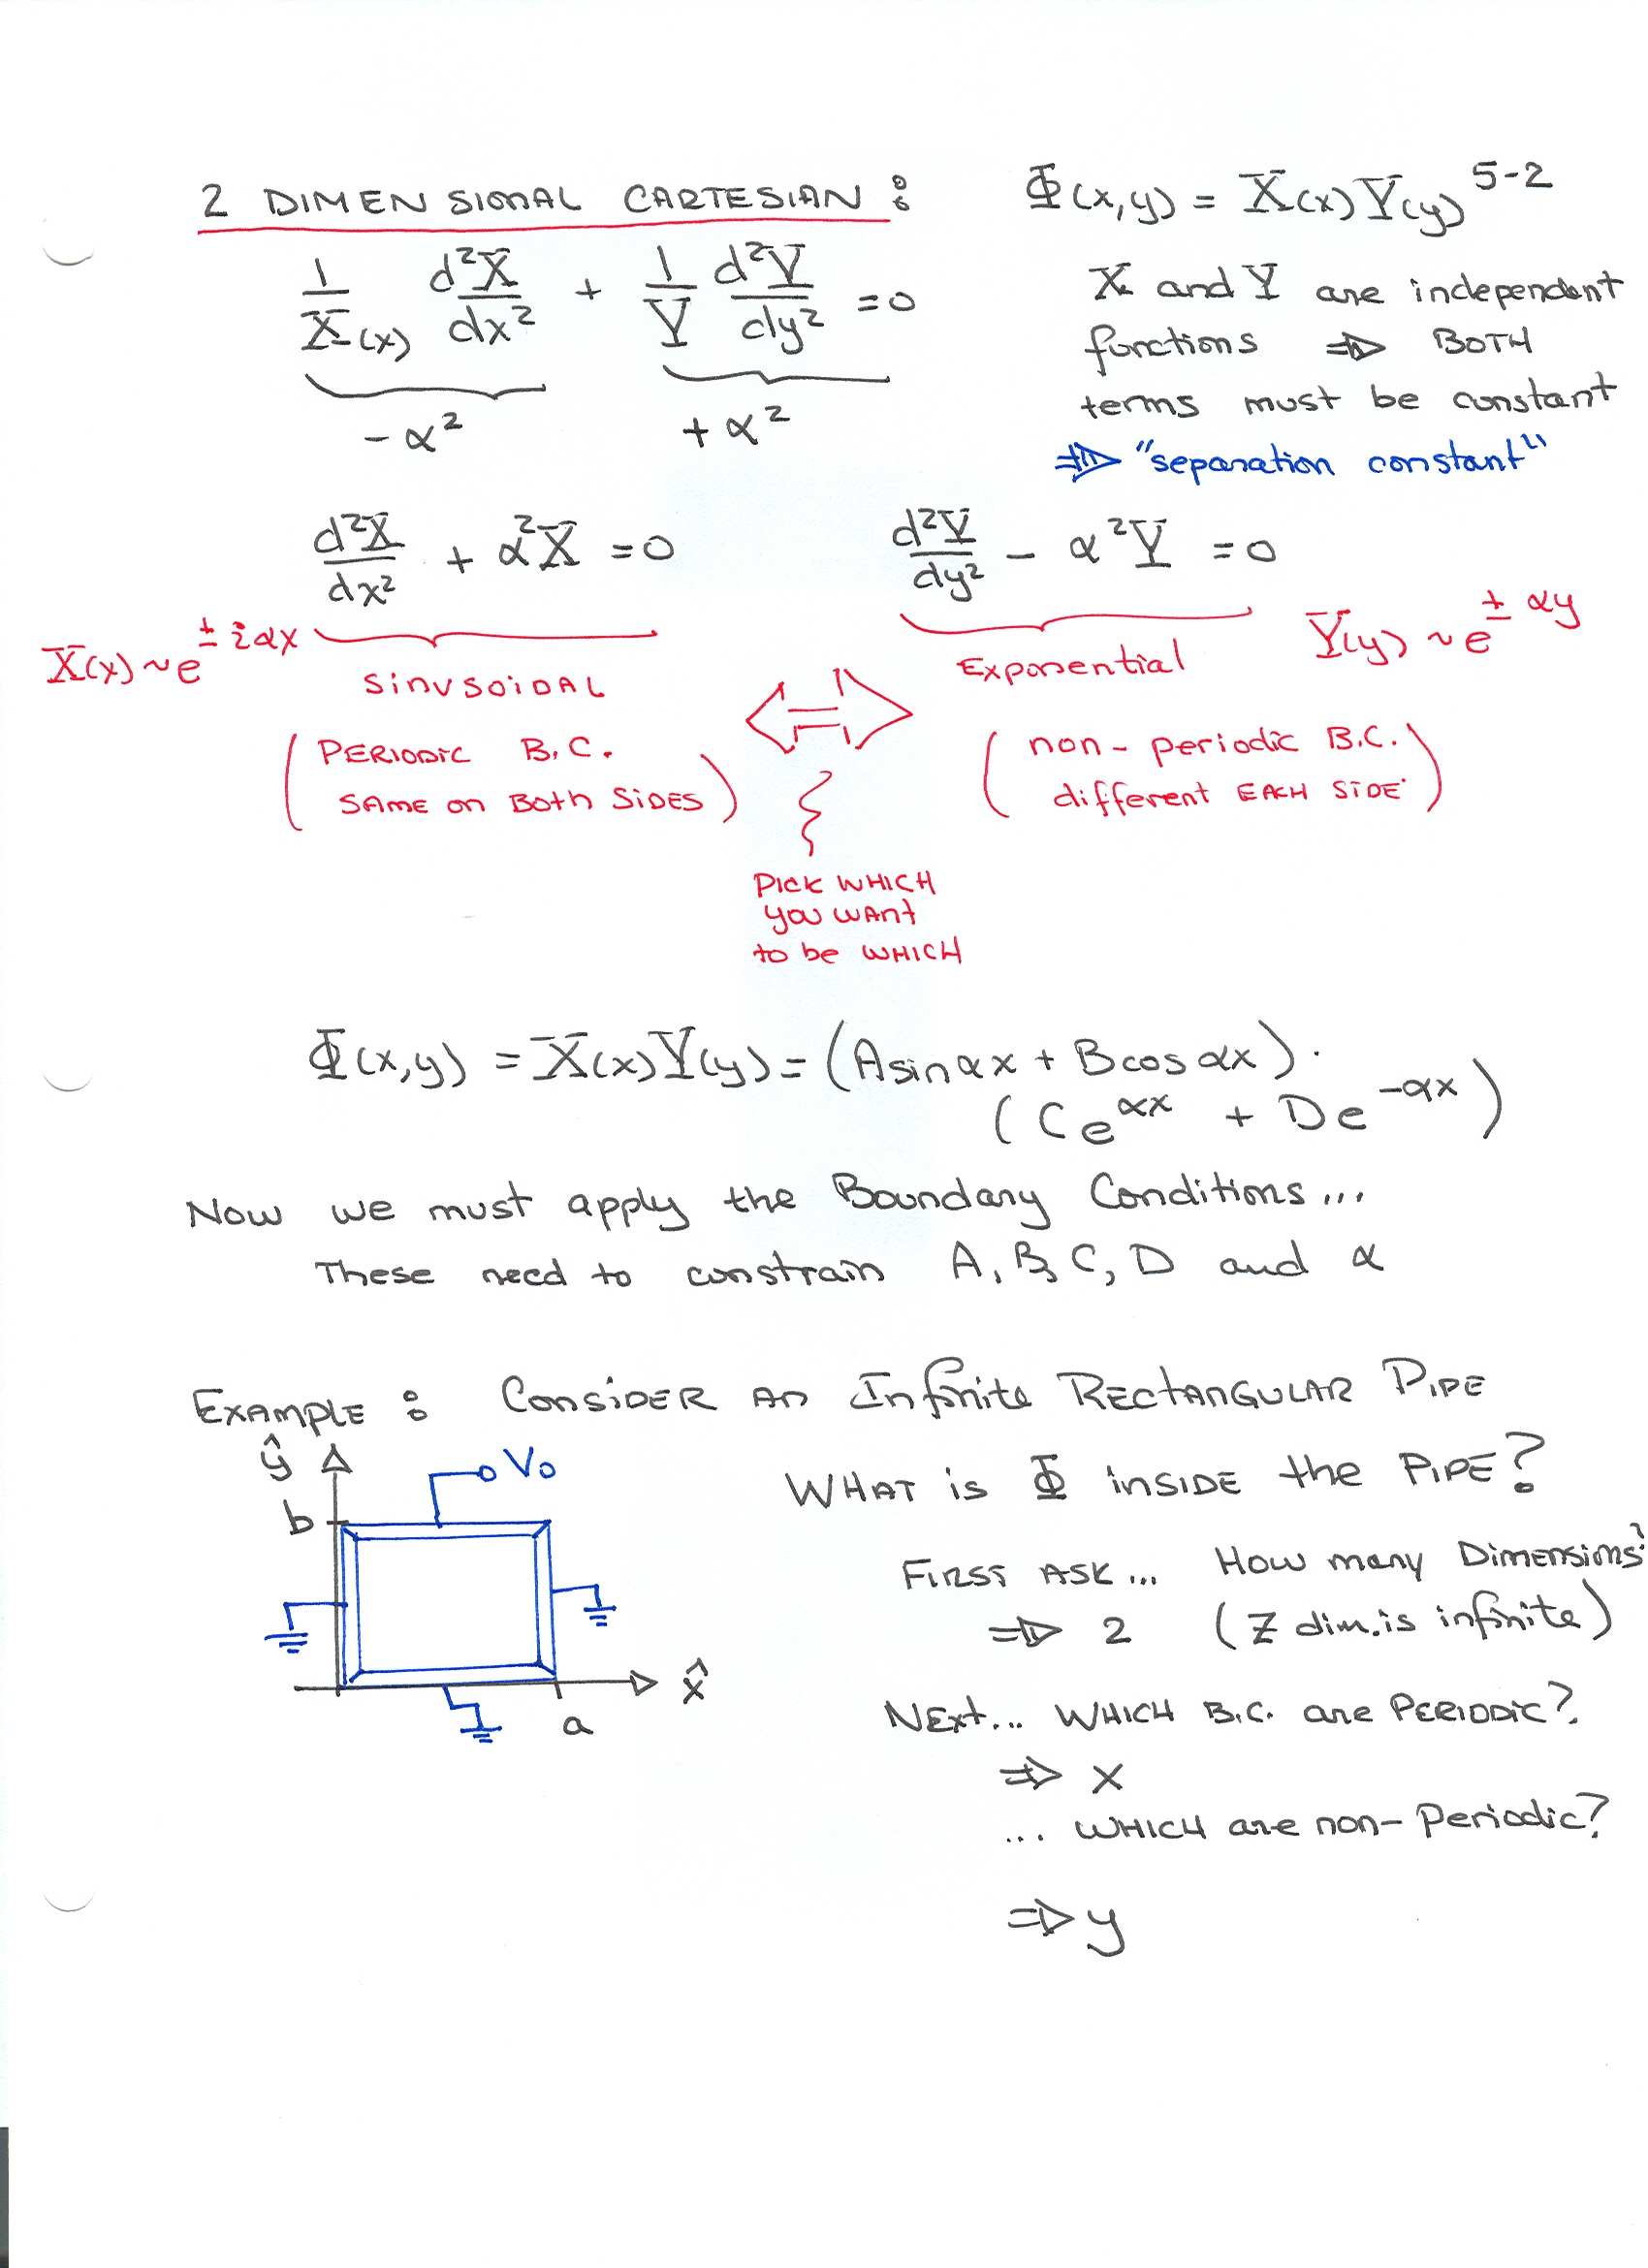 2 DIMENSIONAL CARTESIAN :
Φ(x,y) = X(x)Y(y) 5-2
1/X(x) d²X/dx² + 1/Y d²Y/dy² = 0
-α² +α²
X and Y are independent
functions ⇒ BOTH
terms must be constant
⇒ "separation constant"
d²X/dx² + α²X = 0
d²Y/dy² - α²Y = 0
X(x) ~ e^{± iαx}
SINUSOIDAL
(PERIODIC B.C.
SAME ON BOTH SIDES)
⇔
Exponential
Y(y) ~ e^{± αy}
(non-periodic B.C.
different EACH SIDE)
PICK WHICH
you WANT
to be WHICH
Φ(x,y) = X(x)Y(y) = (A sin αx + B cos αx) ·
(C e^{αx} + D e^{-αx})
Now we must apply the Boundary Conditions...
These need to constrain A, B, C, D and α
EXAMPLE : CONSIDER AN Infinite RECTANGULAR PIPE
ŷ
V₀
b
a
x̂
WHAT is Φ inSIDE the PIPE?
FIRST ASK... How many Dimensions?
⇒ 2 (Z dim. is infinite)
NExt... WHICH B.C. are PERIODIC?
⇒ X
... WHICH are non-Periodic?
⇒ y